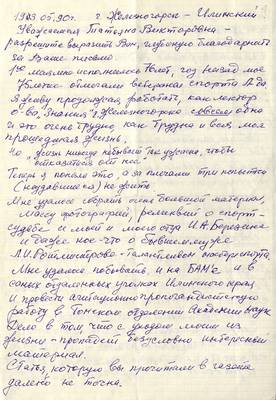 1983.05.30 г. г. Железногорск – Илимский
Уважаемая Татьяна Викторовна –
разрешите выразить Вам, глубокую благодарность
за Ваше письмо
исполнилось лет, год назад мое
отмечали ветераны спорта А да
Я живу продолжаю работать, как лектор
о-ва, Знания г Железногорске совсем одна
и это очень трудно как трудна и вся моя
прошедшая жизнь,
Но, жизнь никогда не бывает так ужасна, чтобы
отказаться от нее
Теперь я поняла это, а за плечами три попытки
(неудавшиеся) не жить
Мне удалось собрать очень большой материал,
массу фотографий, реликвий о спорт-
судьбе и моей и моего отца И.А. Березина
и даже кое-что о бывшем муже
Л.И. – талантливом
Мне удалось побывать, и на БАМе и в
самых отдаленных уголках Илимского края
и провести агитационнопропагандистскую
работу в Томском отделении Академии Наук
Дело в том что с уходом моим из
жизни – пропадет безусловно интересный
материал.
Статья, которую вы прочитали в газете
далеко не точна.